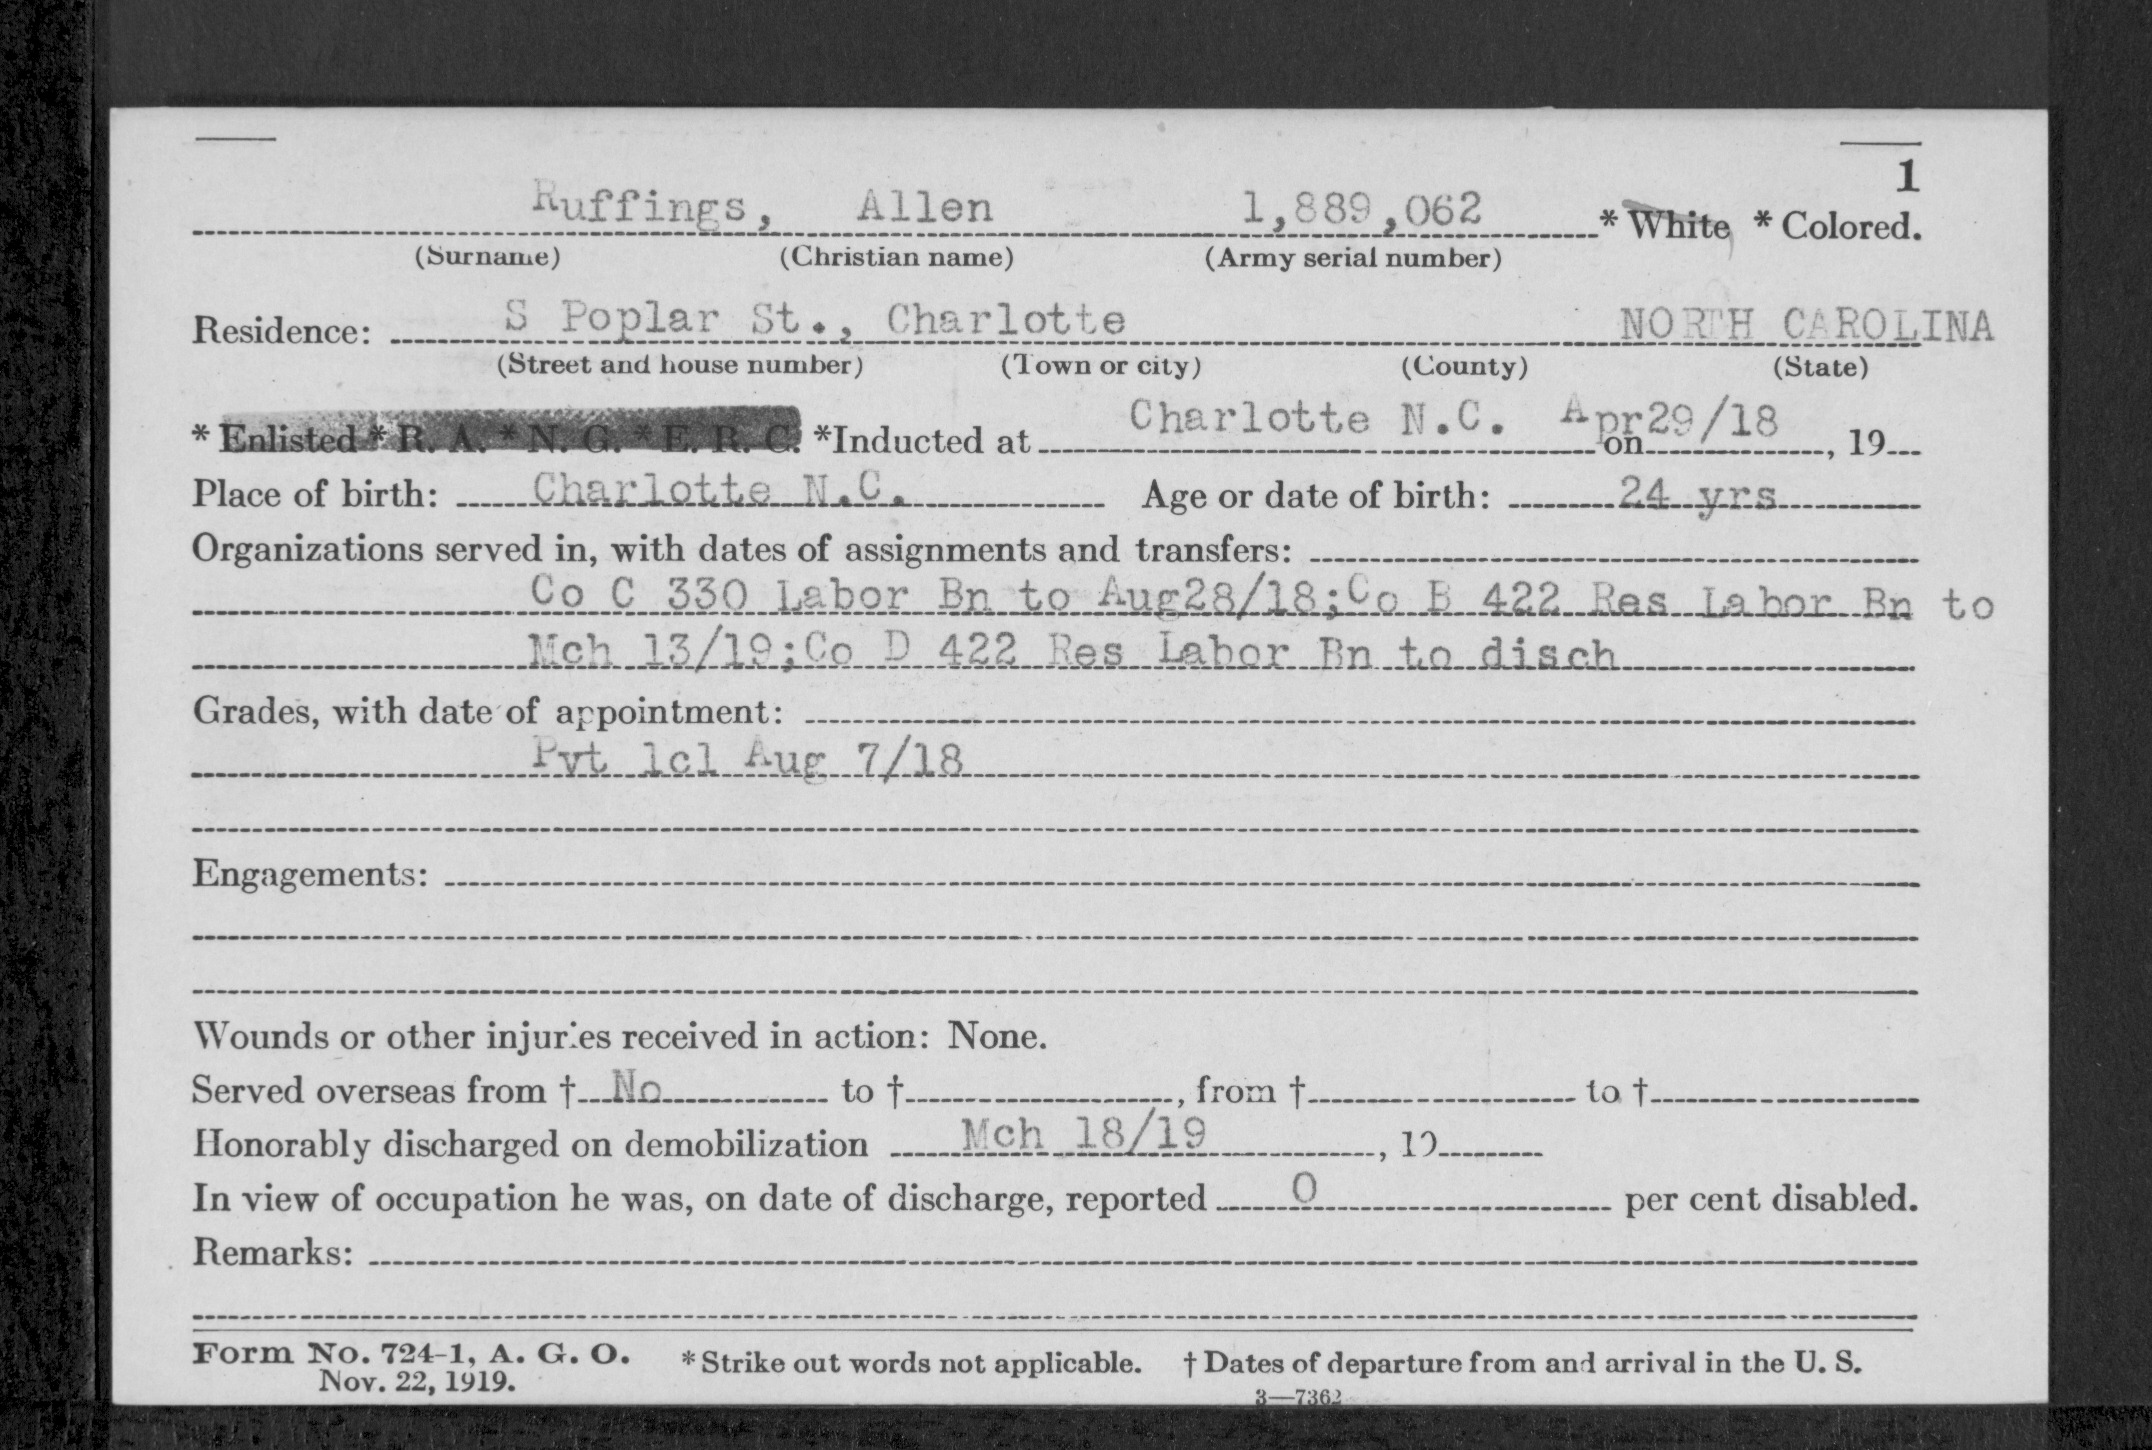 1
Ruffings, Allen 1,889,062 * White * Colored.
(Surname) (Christian name) (Army serial number)
Residence: S Poplar St., Charlotte NORTH CAROLINA
(Street and house number) (Town or city) (County) (State)
* Enlisted * R. A. * N. G. * E. R. C. *Inducted at Charlotte N.C. on Apr29/18, 19
Place of birth: Charlotte N.C. Age or date of birth: 24 yrs
Organizations served in, with dates of assignments and transfers:
Co C 330 Labor Bn to Aug28/18;Co B 422 Res Labor Bn to
Mch 13/19;Co D 422 Res Labor Bn to disch
Grades, with date of appointment:
Pvt 1cl Aug 7/18
Engagements:
Wounds or other injuries received in action: None.
Served overseas from † No to †, from † to †
Honorably discharged on demobilization Mch 18/19, 19
In view of occupation he was, on date of discharge, reported 0 per cent disabled.
Remarks:
Form No. 724-1, A. G. O. * Strike out words not applicable. † Dates of departure from and arrival in the U. S.
Nov. 22, 1919.
3—7362